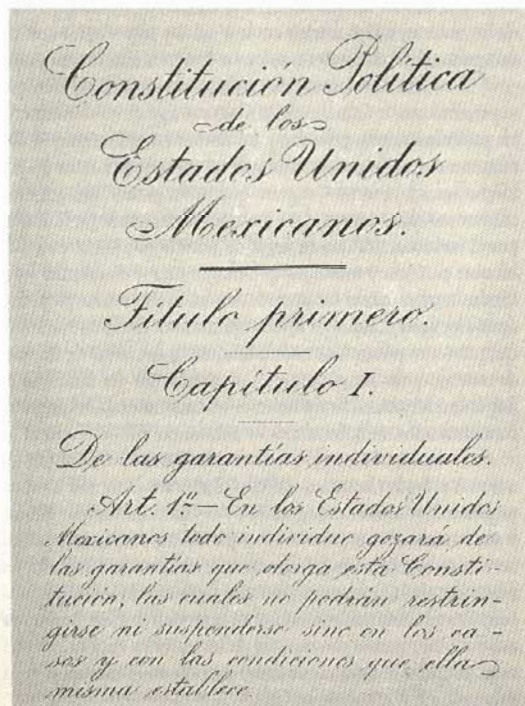 Constitución Política
de los
Estados Unidos
Mexicanos.
Título primero.
Capítulo I.
De las garantías individuales.
Art. 1º.— En los Estados Unidos
Mexicanos todo individuo gozará de
las garantías que otorga esta Consti-
tución, las cuales no podrán restrin-
girse ni suspenderse sino en los ca-
sos y con las condiciones que ella
misma establece.